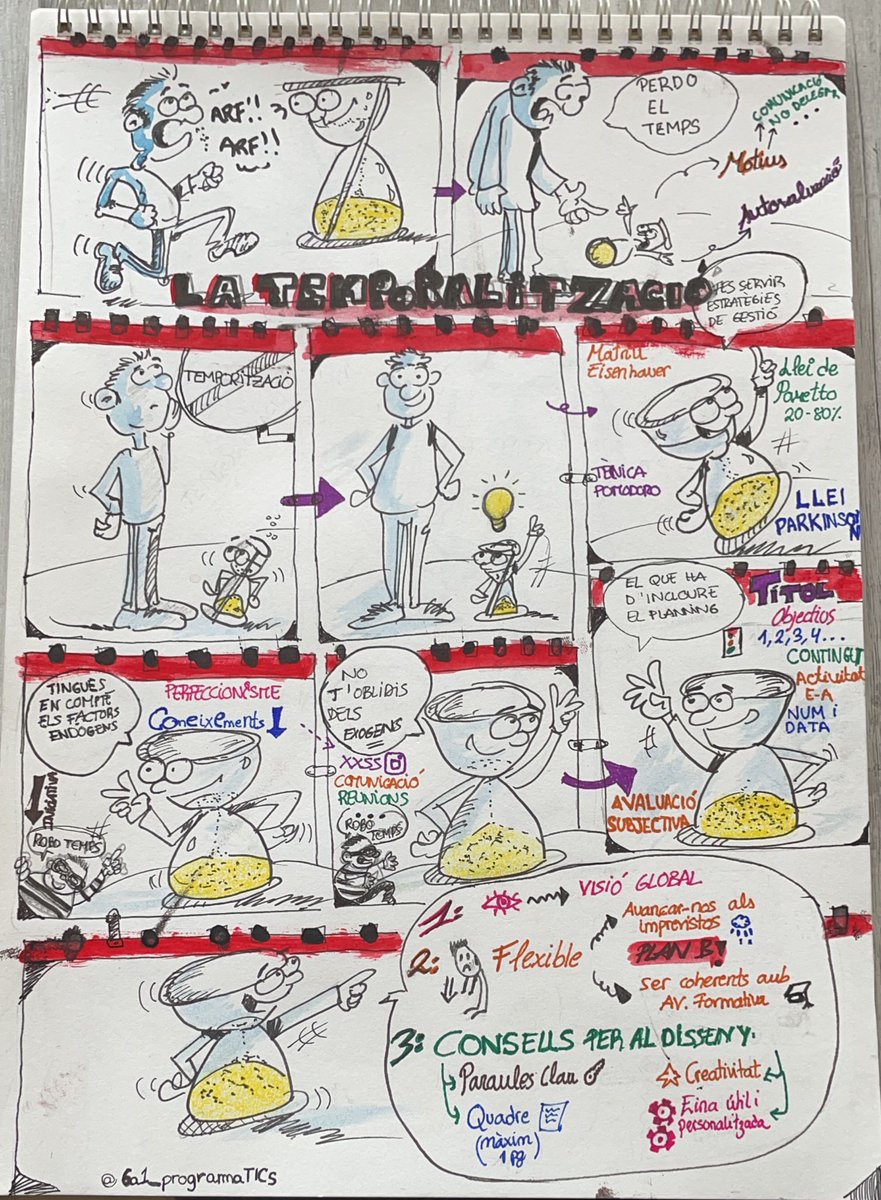 ARF!!
ARF!!
PERDO
EL
TEMPS
COMUNICACIÓ
NO DELEGAR
...
Motius
Autoavaluació
LA TEMPORALITZACIÓ
TEMPORITZACIÓ
FES SERVIR
ESTRATEGIES
DE GESTIÓ
Matriu
Eisenhauer
Llei de
Paretto
20-80%
TÈNICA
POMODORO
LLEI
PARKINSON
EL QUE HA
D'INCLOURE
EL PLANNING
TÍTOL
Objectius
1, 2, 3, 4...
CONTINGUT
Activitat
E-A
NUM i
DATA
AVALUACIÓ
SUBJECTIVA
TINGUES
EN COMPTE
ELS FACTORS
ENDÒGENS
PERFECCIONISME
Coneixements
INICIATIVA
ROBO TEMPS
NO
T'OBLIDIS
DELS
EXOGENS
XXSS
COMUNICACIÓ
REUNIONS
...
ROBO TEMPS
1: VISIÓ GLOBAL
2: Flexible
Avançar-nos als
imprevistos
PLAN B!
ser coherents amb
AV. Formativa
3: CONSELLS PER AL DISSENY:
Paraules Clau
Quadre
(màxim
1 pg)
Creativitat
Eina útil i
personalitzada
@6a1_programaTICs